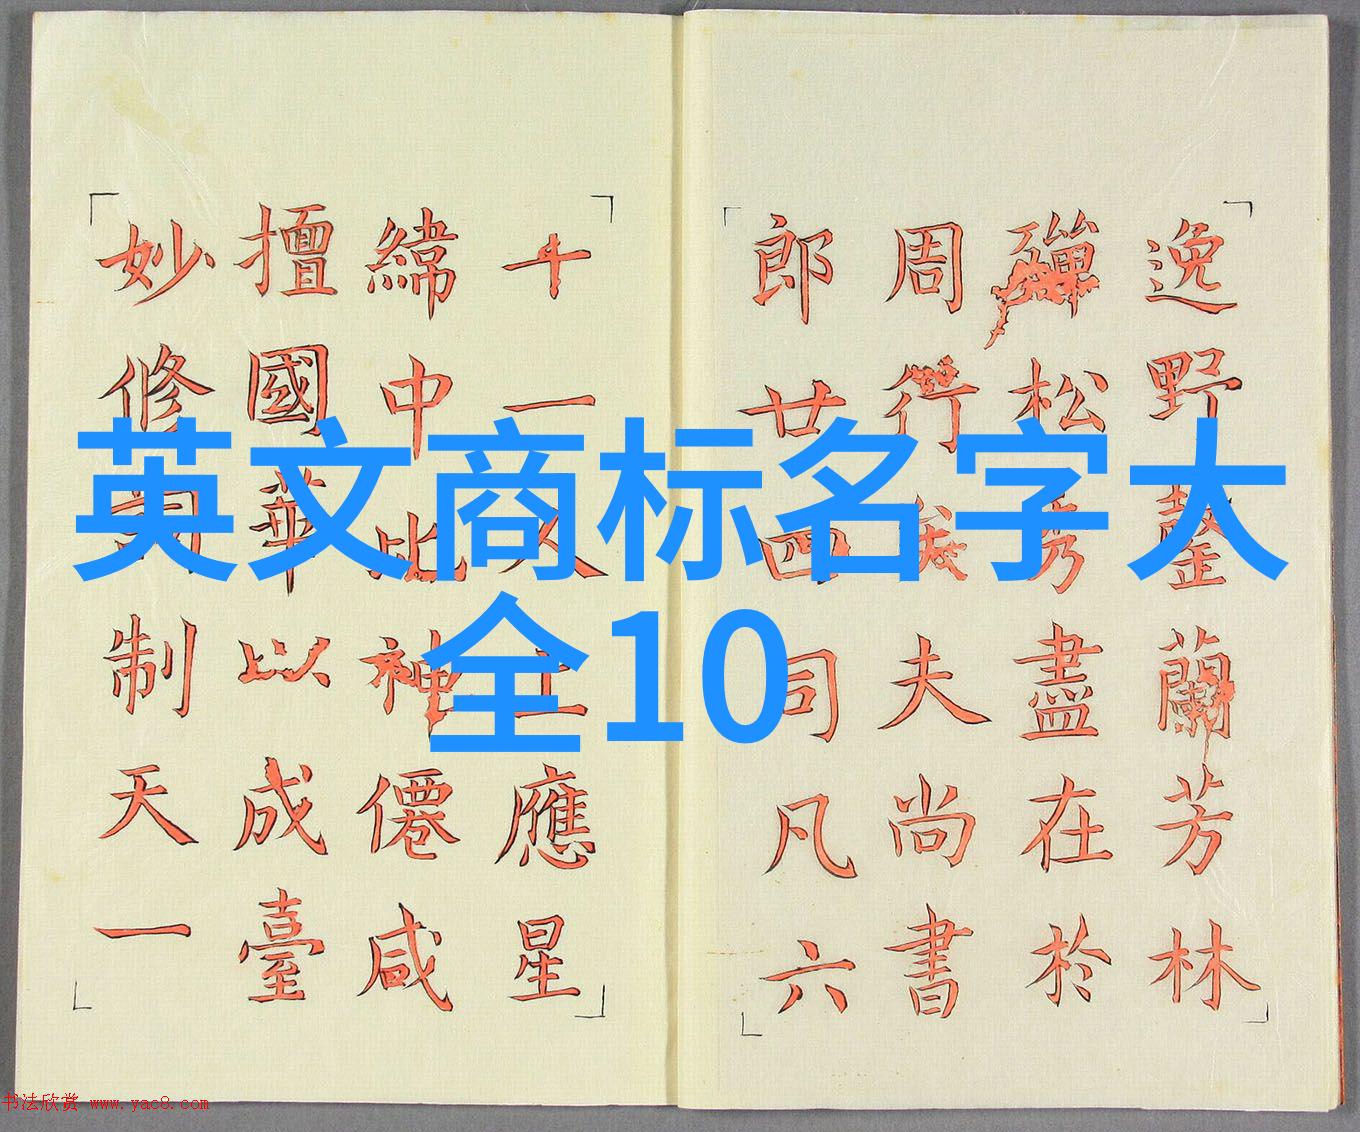 英文商标名字大
全10
逸野蘭芳林
殫松秀盡在於
周行夫尚書
郎廿四司凡六
十一人上應星
緯中比神僊咸
擅國華以成臺
妙修制天一
书法欣赏 www.yac8.com